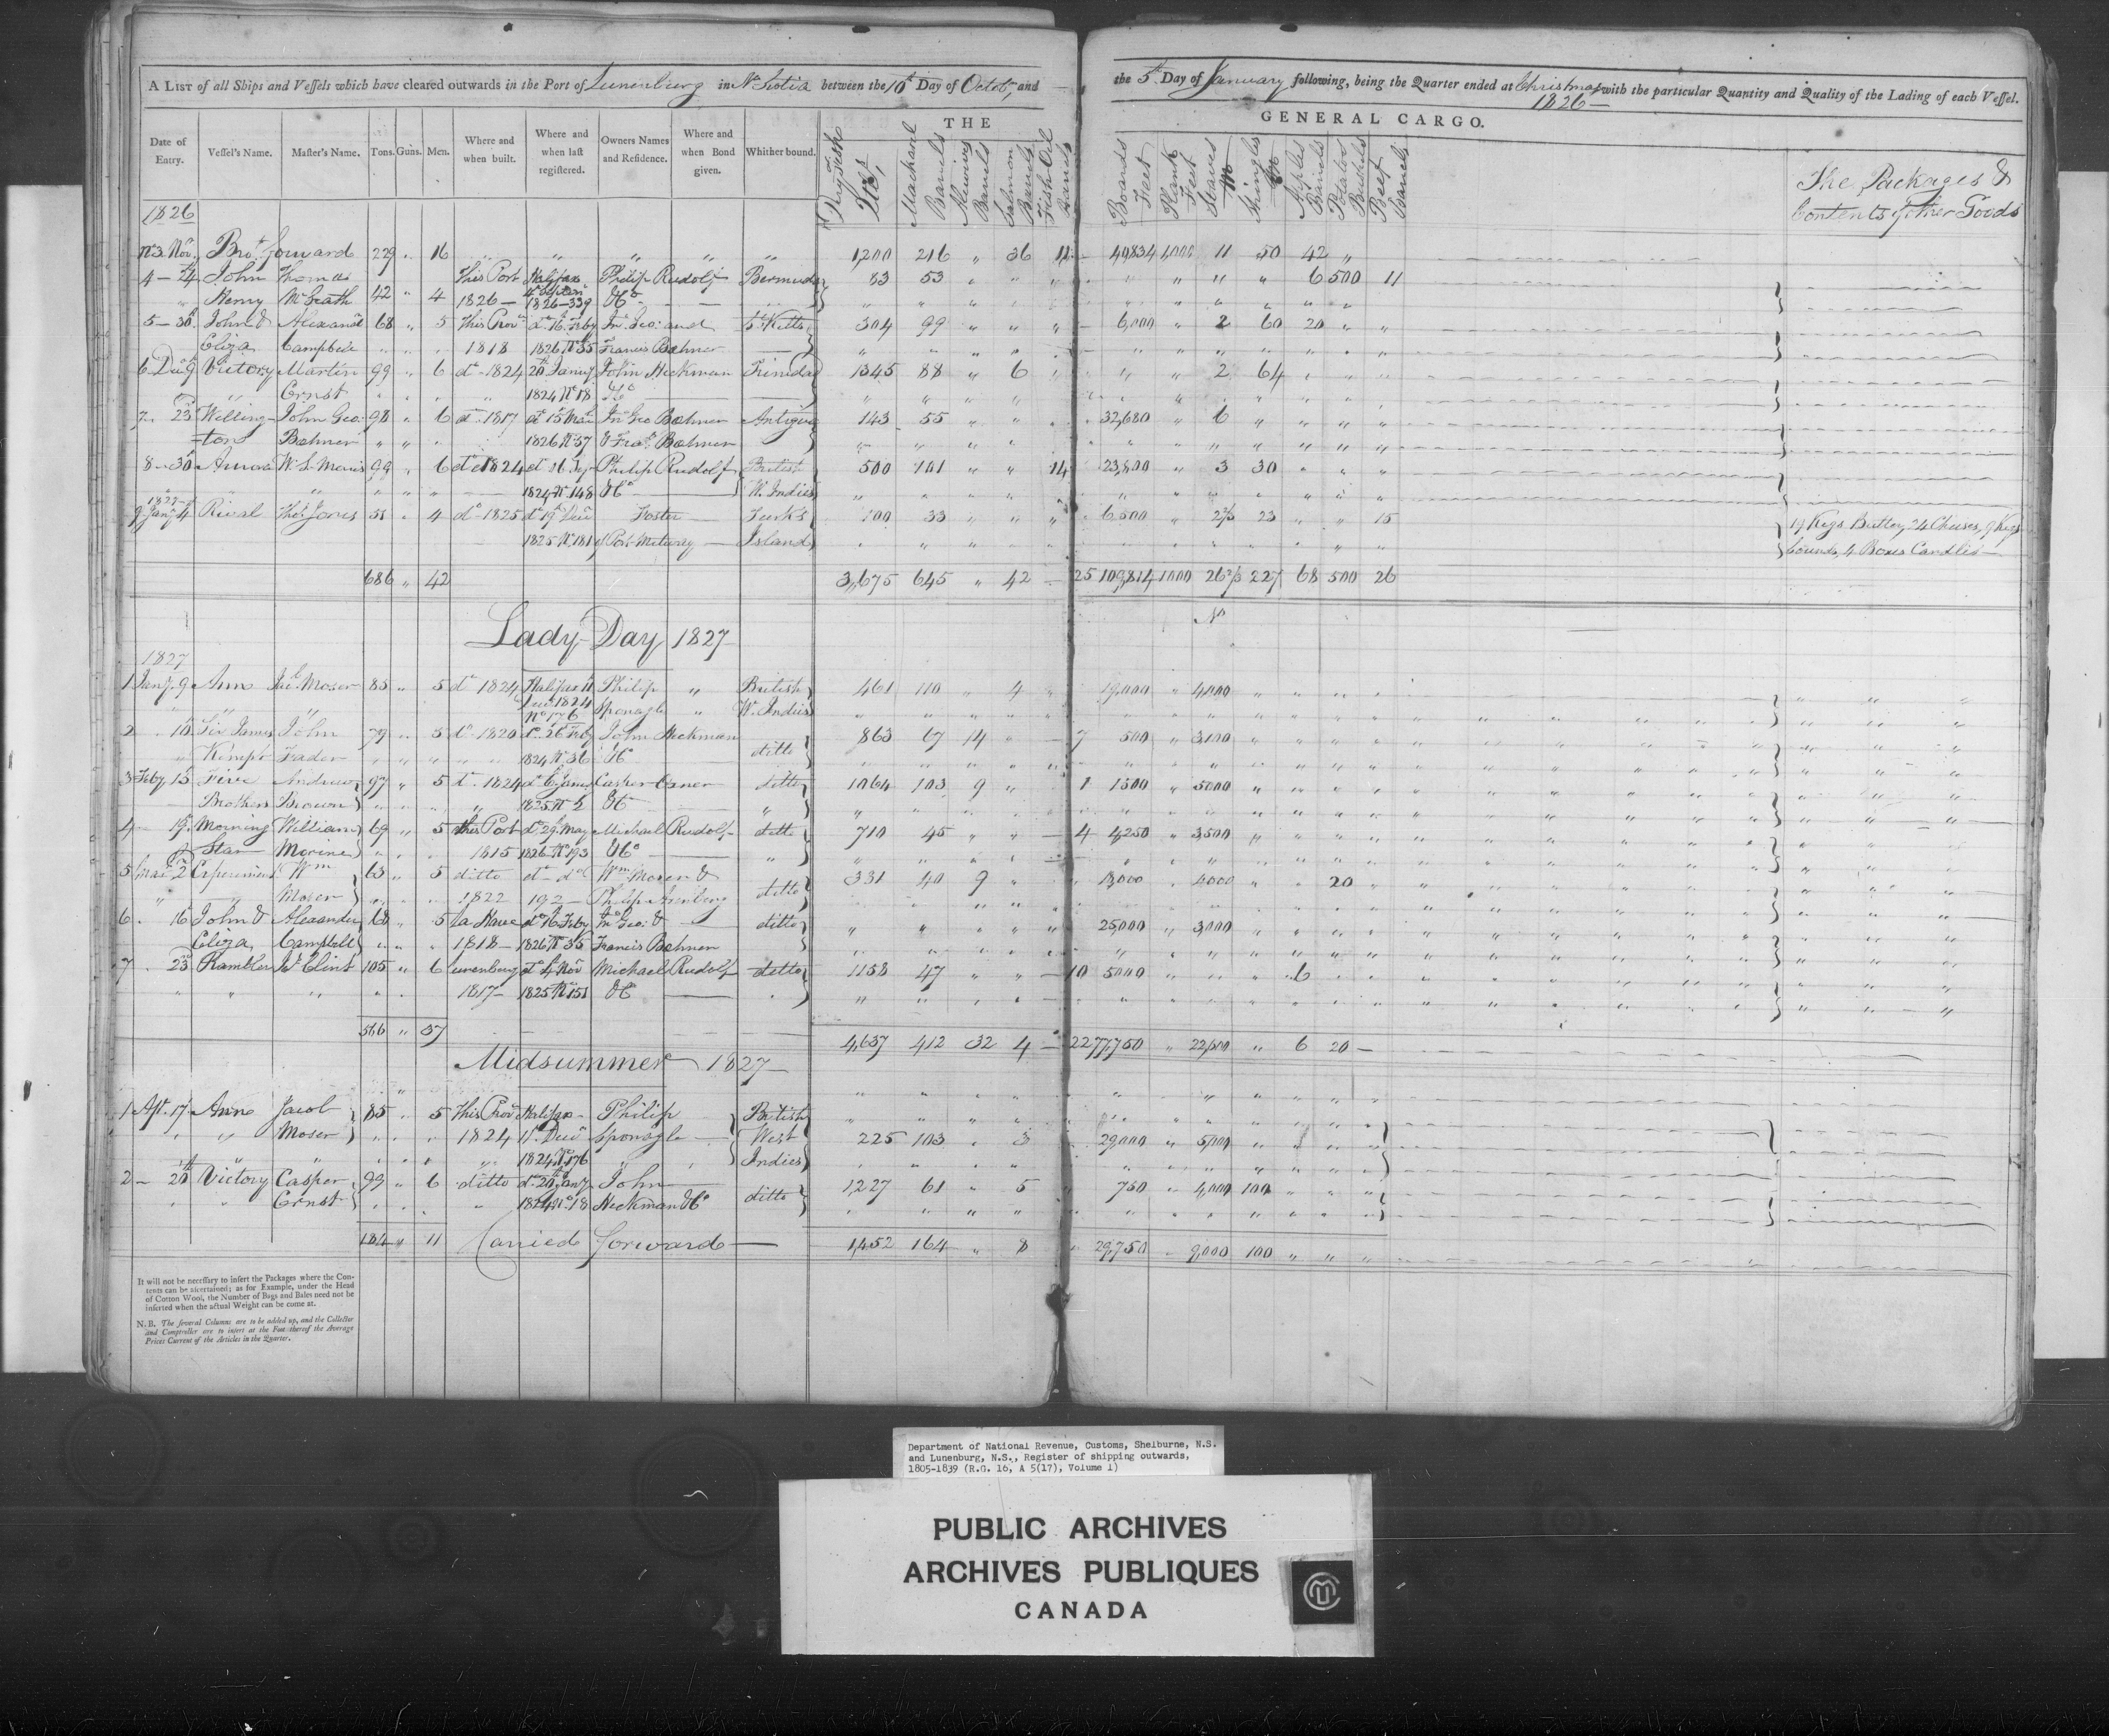 A LIST of all Ships and Vessels which have cleared outwards in the Port of Lunenburg in N. Scotia between the 10th Day of Octob. and the 5th Day of January following, being the Quarter ended at Christmas with the particular Quantity and Quality of the Lading of each Vessel.
1826 —
THE GENERAL CARGO.
Date of Entry. Vessel's Name. Master's Name. Tons. Guns. Men. Where and when built. Where and when last registered. Owners Names and Residence. Where and when Bond given. Whither bound. Dry Fish Mackarel Barrels Barrels Salmon Barrels Fish Oil Barrels Boards Feet Plank Feet Staves M Shingles M Apples Barrels Potatoes Bushels Beef Barrels The Packages & Contents of other Goods
1826
No 3 Nov. Bro.t forward 229 " 16 " " " " " 1,200 216 " 36 11 40,834 1,000 11 50 42 "
4 — 24 John Thomas This Port Halifax Philip Rudolf Bermuda 83 53 " " " " " 6 500 11
" Henry McGrath 42 " 4 1826 — 1826 — 339 & Co
5 — 30 John & Alexandr 68 " 5 This Prov. do 16 Feby Jno Geo: and St Kitts 304 99 " " " 6,000 " 2 60 20 " "
Eliza Campbell 1818 1826 No 35 Francis Bohner
6 Decr 9 Victory Martin 99 " 6 do 1824 20 Jany John Heckman Trinidad 1345 88 " 6 " " " 2 64
Ernst 1824 No 18 & Co
7 " 23 Welling- John Geo: 98 " 6 do 1817 do 15 Mar Jno Geo Bohner Antigua 143 55 " " 32,680 " 6
-ton Bohner 1826 No 57 & Fras Bohner
8 — 30 W. S. 99 " 6 do 1824 Philip Rudolf British 500 141 " " 14 23,800 " 3 30
1824 No 148 & Co W. Indies
1827
9 Jany 4 Rival Thos Jones 51 " 4 do 1825 do 19 Decr Foster Turks 100 33 " " " 6,500 " 2 2/3 23 " " 15 19 Kegs Butter, 24 Cheeses, 9 Kegs
1825 No 181 of Port Island 4 Boxes Candles —
686 " 42 3,675 645 " 42 — 25 109,814 1000 26 2/3 227 68 500 26
Lady Day 1827
No
1827
1 Jany 9 Ann Jac. Moser 85 " 5 do 1824 Halifax 11 Philip " British 461 110 " 4 " 19,000 " 4,000
Decr 1824 Sponagle " W. Indies
No 176
2 " 10 Sir James John 79 " 5 do 1820 do 26 Feby John Heckman ditto 863 67 14 " — 7 500 " 3,100
Kempt Fader 1824 No 36 & Co
3 Feby 15 Five Andrew 97 " 5 do 1824 do 6 Jany Casper ditto 1064 103 9 " 1 1500 " 5000
Brothers Brown 1825 No 2 & Co
4 — 19 Morning William 69 " 5 this Port do 29 May Michael Rudolf ditto 710 45 " " — 4 4,250 " 3,500
Star Morine 1815 1826 No 193 & Co
5 Mar 2 Experiment Wm 63 " 5 ditto do do Wm Moser & ditto 381 40 9 " " 18,000 " 4000 " " 20
Moser 1822 192 — Philip
6 " 16 John & Alexander 68 " 5 La Have do 16 Feby Jno Geo: & ditto " " " " " 25,000 " 3,000
Eliza Campbell 1818 — 1826 No 35 Francis Bohner
7 " 23 Rambler 105 " 6 Lunenburg do 4 Nov Michael Rudolf ditto 1158 47 " " — 10 5000 " " " 6
1817 — 1825 No 151 & Co
566 " 37 4,637 412 32 4 — 22 77,750 " 22,600 " 6 20 —
Midsummer 1827 —
1 Apl. 17 Ann Jacob 85 " 5 This Prov. Halifax Philip British
Moser 1824 11 Decr Sponagle West 225 103 " 3 29,000 " 5,000
1824 No 176 Indies
2 — 20 Victory Casper 99 " 6 ditto do 20 Jany John ditto 1,227 61 " 5 750 " 4,000 100
Ernst 1824 No 18 Heckman & Co
184 " 11 Carried forward — 1,452 164 " 8 29,750 " 9,000 100 " " "
It will not be necessary to insert the Packages where the Con-
tents can be ascertained; as for Example, under the Head
of Cotton Wool, the Number of Bags and Bales need not be
inserted when the actual Weight can be come at.
N. B. The several Columns are to be added up, and the Collector
and Comptroller are to insert at the Foot thereof the Average
Prices Current of the Articles in the Quarter.
Department of National Revenue, Customs, Shelburne, N.S.
and Lunenburg, N.S., Register of shipping outwards,
1805-1839 (R.G. 16, A 5(17), Volume 1)
PUBLIC ARCHIVES
ARCHIVES PUBLIQUES
CANADA